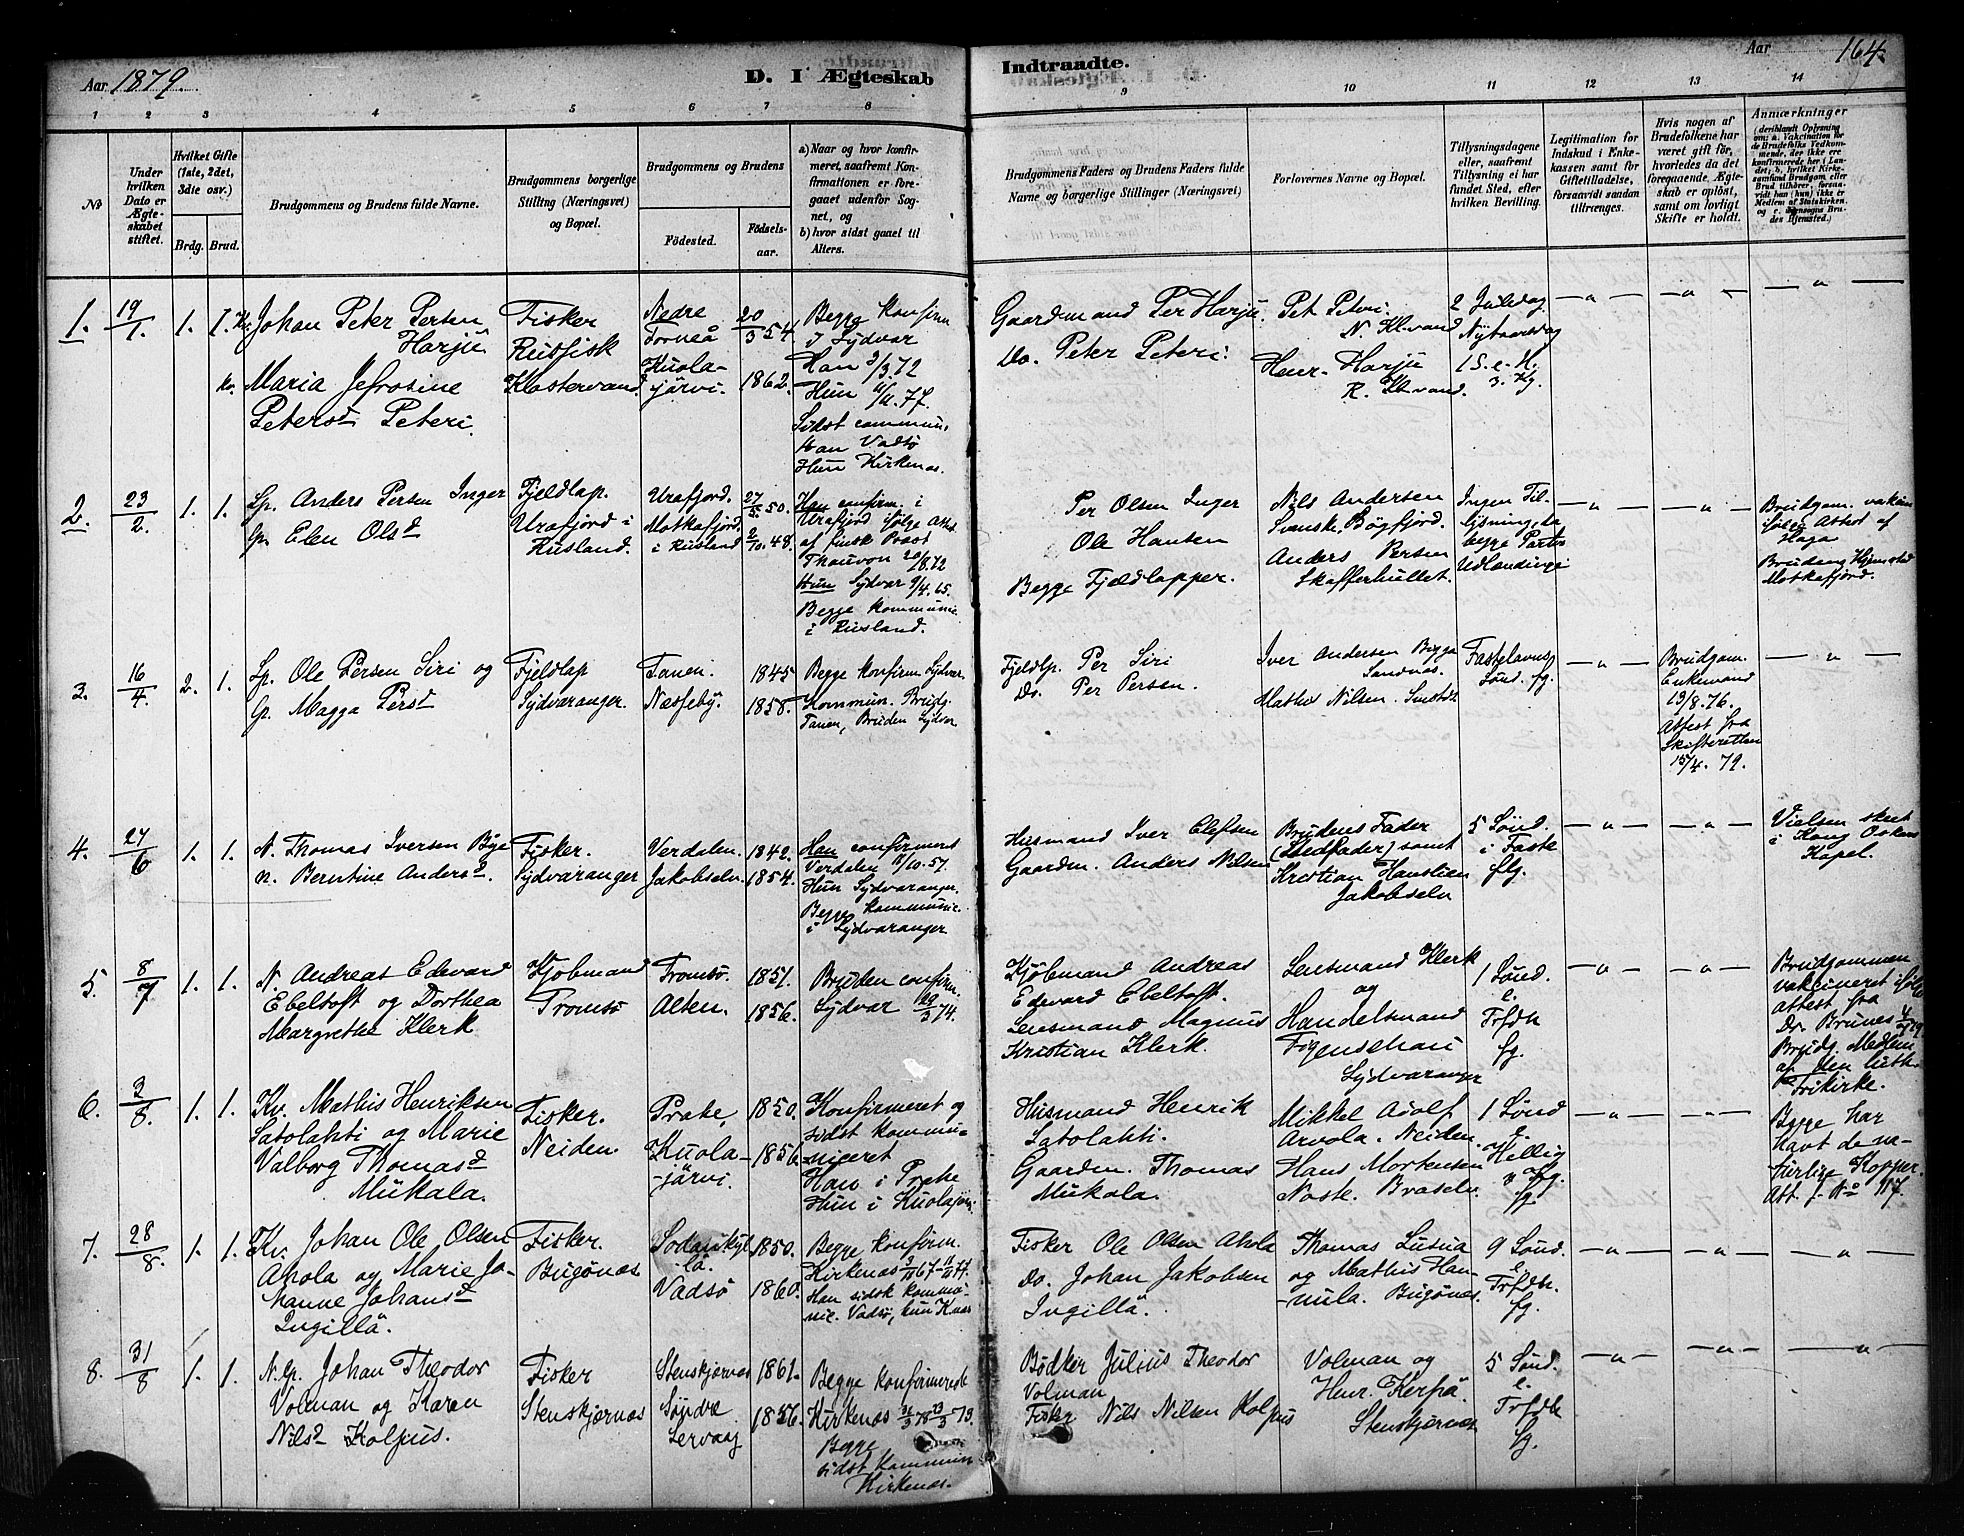 Aar 1879.
D. I Ægteskab
Indtraadte.
Aar
164.
1 2 3 4 5 6 7 8 9 10 11 12 13 14
No
Under hvilken Dato er Ægteskabet stiftet.
Hvilket Gifte (1ste, 2det, 3die osv.)
Brdg. Brud.
Brudgommens og Brudens fulde Navne.
Brudgommens borgerlige Stilling (Næringsvei) og Bopæl.
Brudgommens og Brudens
Fødested.
Fødselsaar.
a) Naar og hvor konfirmeret, saafremt Konfirmationen er foregaaet udenfor Sognet, og
b) hvor sidst gaaet til Alters.
Brudgommens Faders og Brudens Faders fulde Navne og borgerlige Stillinger (Næringsvei)
Forlovernes Navne og Bopæl.
Tillysningsdagene eller, saafremt Tillysning ei har fundet Sted, efter hvilken Bevilling.
Legitimation for Indskud i Enkekassen samt for Giftetilladelse, forsaavidt saadan tiltrænges.
Hvis nogen af Brudefolkene har været gift før, hvorledes da det foregaaende Ægteskab er opløst, samt om lovligt Skifte er holdt.
Anmærkninger
(deriblandt Oplysning om: a. Vakcination for de Brudefolks Vedkommende, der ikke ere konfirmerede her i Landet; b. hvilket Kirkesamfund Brudgom. eller Brud tilhører, forsaavidt han (hun) ikke er Medlem af Statskirken, og c. Brudens Hjemsted.)
1. 19/1. 1. 1. Kv. Johan Peter Persen Harju
Kv. Maria Jefrosine Petersd Peteri.
Fisker Rusfisk Klostervand
Nedre Torneå 20/3 54.
Kuolajärvi. 1862.
Begge Konfirm i Sydvar
Han 3/3.72
Hun 11/11.77.
Sidst commun. Han Vadsö
Hun Kirkenæs.
Gaardmand Per Harju.
Do. Peter Peteri.
Pet Peteri. N. Kl.vand
Henr. Harju K. Kl.vand.
2 Juledag Nytaarsdag 1 S. e. H. 3. Kg.
— " — — " — — " —
2. 23/2 1. 1. Lp. Anders Persen Inger
Lp. Elen Olsd
Fjeldlap. Urafjord i Rusland.
Urafjord. 27/5 50.
Motkafjord i Rusland 2/10. 48.
Han confirm. i Urafjord ifølge Attest af finsk Præst Thauvon 20/8.72
Hun Sydvar 9/4.65.
Begge kommunic. i Rusland.
Per Olsen Inger
Ole Hansen
Begge Fjeldlapper.
Nils Andersen Svanvik Bøgfjord.
Anders Persen Skafferhullet.
Ingen Tillysning, da begge Parter Udlændinge
— " — — " —
Brudgom. vakcin. ifølge Attest af Haga
Brudens Hjemsted Motkafjord.
3. 16/4. 2. 1. Lp. Ole Persen Siri og
Lp. Magga Persd
Fjeldlap Sydvaranger.
Tanen. 1845
Næsseby. 1858.
Begge Konfirm. Sydvar.
Kommun. Brudg. Tanen, Bruden Sydvar
Fjeldlp. Per Siri
Do. Per Persen.
Iver Andersen Bigga Sandnæs.
Mathis Nilsen
Fastelavnssønd. fg.
— " —
Brudgom. Enkemand 19/8.76.
Attest fra Skifteretten 15/4. 79.
— " —
4. 27/6 1. 1. N. Thomas Iversen Bye
N. Berntine Andersd.
Fisker. Sydvaranger
Verdalen. 1842.
Jakobselv. 1854.
Han confirmeret Verdalen 11/10.57.
Hun Sydvaranger.
Begge kommunic. i Sydvaranger
Husmand Iver Olefsen
Gaarden. Anders Nilsen
Brudens Fader (Stedfader) samt Kristian Hanstien Jakobselv
5 Sønd. i Faste flg.
— " — — " —
Vielsen skeet i Kong Oskars Kapel.
5. 8/7 1. 1. N. Andreas Edevard Ebeltoft og Dorthea Margrethe Klerk
Kjøbmand Tromsö
Tromsö. 1851.
Alten. 1856.
Bruden confirm. Sydvar 29/3 74.
Kjøbmand Andreas Edevard Ebeltoft.
Lensmand Magnus Kristian Klerk.
Lensmand Klerk og Handelsmand Figenschau Sydvaranger
1 Sønd. e. Trfdh fg.
— " — — " —
Brudgommen vakcineret ifølge attest fra Dr. Brunes
Brudg. Medlem af den luth. Frikirke.
6. 3/8. 1. 1. Kv. Mathis Henriksen Satolahti og Marie Valborg Thomasd Mukala.
Fisker. Neiden.
Prahe, 1850.
Kuolajärvi. 1856
Konfirmeret og sidst kommuniceret
Han i Prahe
Hun i Kuolajärvi.
Husmand Henrik Satolahti.
Gaarden. Thomas Mukala.
Mikkel Adolf Arvola. Neiden.
Hans Mortensen Noste. Braselv.
1 Sønd e. Hellig 3 Kg. fg.
— " — — " —
Begge har havt de naturlige Kopper. Att. J. No 117.
7. 28/8. 1. 1. Kv. Johan Ole Olsen Ahola og Marie Johanne Johansd Ingillä.
Fisker. Bugönæs
Sodankylä. 1850.
Vadsö 1860.
Begge konfirm. Kirkenæs
Han sidst kommunic. Vadsö, hun Knæs
Fisker Ole Olsen Ahola
Do. Johan Jakobsen Ingillä.
Thomas Lusua og Mathis Hannula. Bugönæs
9 Sønd. e. Trfdh. fg.
— " — — " — — " —
8. 31/8 1. 1. N. Lp. Johan Theodor Volman og Karen Nilsd Kolpus.
Fisker Stenskjernæs
Stenskjernæs 1861.
Søndre Lervaag 1856.
Begge konfirmerede Kirkenæs
Begge sidst kommun. Kirkenæs.
Bødker Julius Theodor Volman
Fiskr Nils Nilsen Kolpus
Volman og Henr. Kerpä Stenskjernæs
5 Sønd. e. Trfdh fg.
— " — — " — — " —